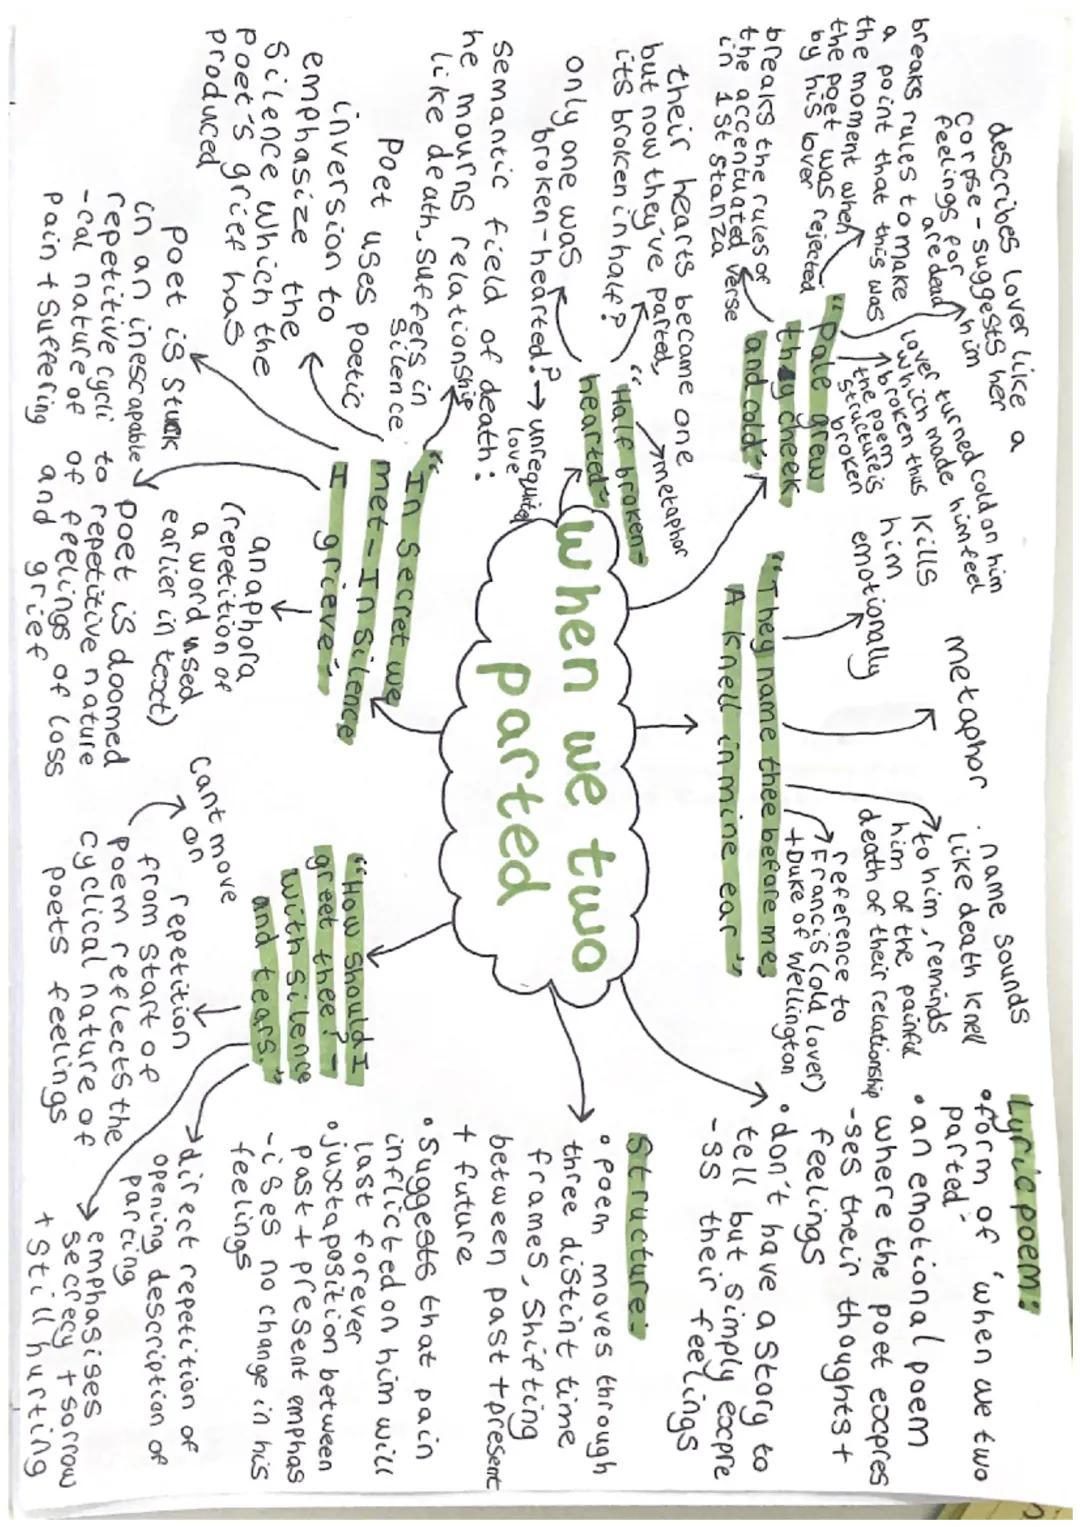 when we two
parted
describes lover like a
corpse - suggests her
feelings for him
are dead
breaks rules to make
a point that this was
the moment when
the poet was rejected
by his lover
breaks the rules of
the accentuated verse
in 1st stanza
"Pale grew
thy cheek
and cold"
lover turned cold on him
which made him feel
broken thus
the poem is
structure is
broken
"Half broken-
hearted"
metaphor
their hearts became one
but now they've parted,
its broken in half?
only one was
broken-hearted? → unrequited
love
"In secret we
met - In silence
I grieve"
semantic field of death:
he mourns relationship
like death, suffers in
silence
Poet uses poetic
inversion to
emphasize the
silence which the
poet's grief has
produced
poet is stuck
in an inescapable
repetitive cycli
-cal nature of
pain + suffering
anaphora
(repetition of
a word used
earlier in text)
poet is doomed
to repetitive nature
of feelings of loss
and grief
"They name thee before me,
A knell in mine ear"
Kills
him
emotionally
metaphor
. name sounds
like death knell
to him, reminds
him of the painful
death of their relationship
reference to
Francis (old lover)
+ Duke of Wellington
"How should I
greet thee? -
with silence
and tears."
repetition
from start of
poem reflects the
cyclical nature of
poets feelings
Cant move
on
direct repetition of
opening description of
parting
emphasises
secrecy + sorrow
+ still hurting
Lyric poem:
• form of 'when we two
parted"
• an emotional poem
where the poet expres
-ses their thoughts +
feelings
• don't have a story to
tell but simply expre
-ss their feelings
Structure:
• poem moves through
three distint time
frames, shifting
between past + present
+ future
• Suggests that pain
inflicted on him will
last forever
• juxtaposition between
past + present emphas
-ises no change in his
feelings